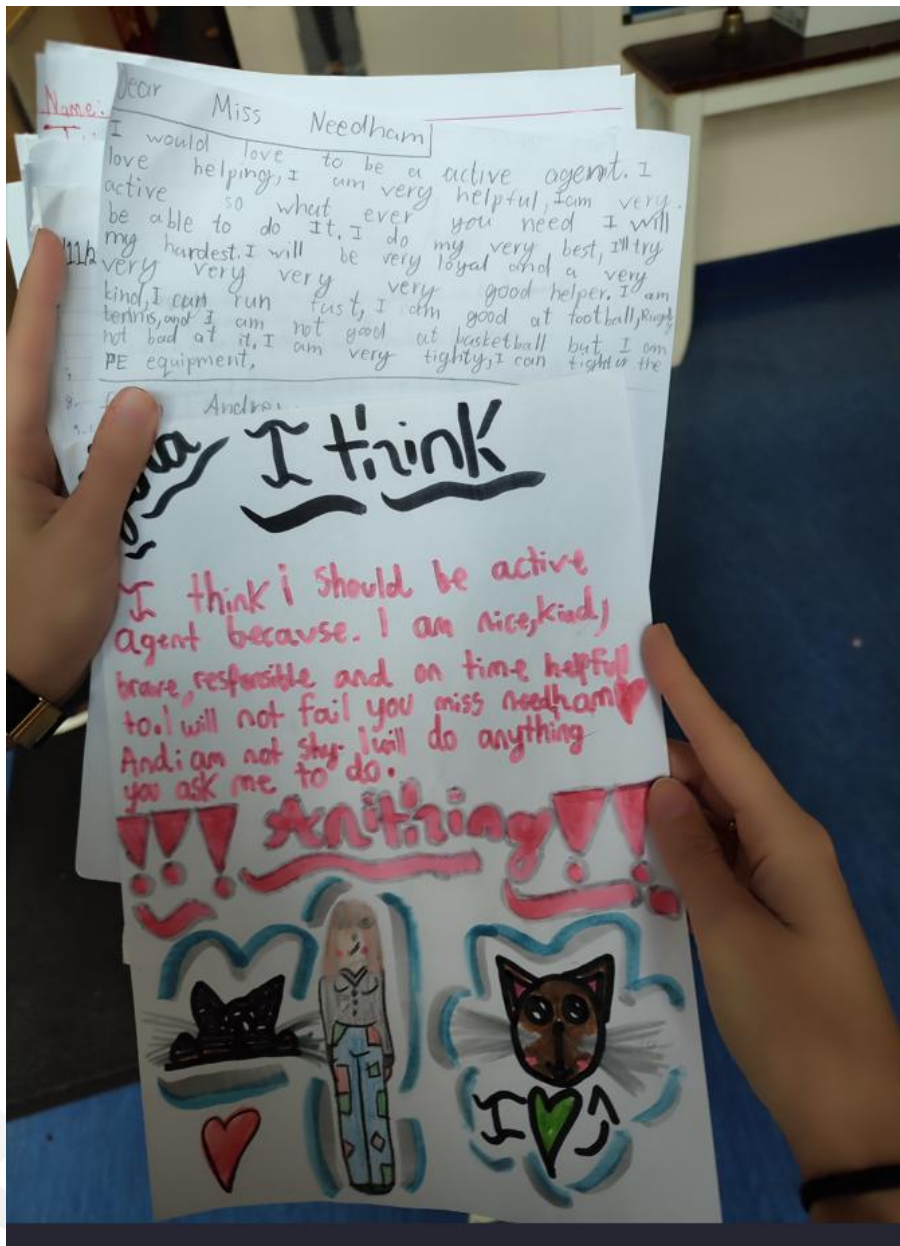 Name:
Dear Miss Needham
I would love to be a active agent. I
love helping, I am very helpful, Iam very
active so what ever you need I will
be able to do It. I do my very best, I'll try
my hardest. I will be very loyal and a very
very very very very good helper. I am
kind, I can run fast, I am good at football, Rugby
tennis, and I am not good at basketball but I am
not bad at it. I am very tighty, I can tight up the
PE equipment.
Andrei
I think
I think i should be active
agent because. I am nice, kind,
brave, responsible and on time helpfull
to. I will not fail you miss needham
And i am not shy. I will do anything
you ask me to do.
!!! Anithing !!
I